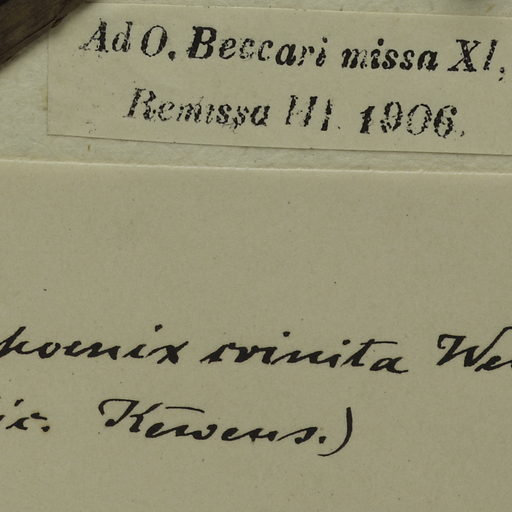 Ad O. Beccari missa XI,
Remissa III. 1906.
hoenix svinita We
ic. Kewens.)